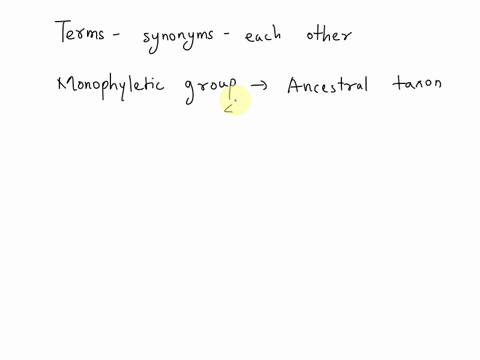 Terms - synonyms - each other
Monophyletic group → Ancestral taxon